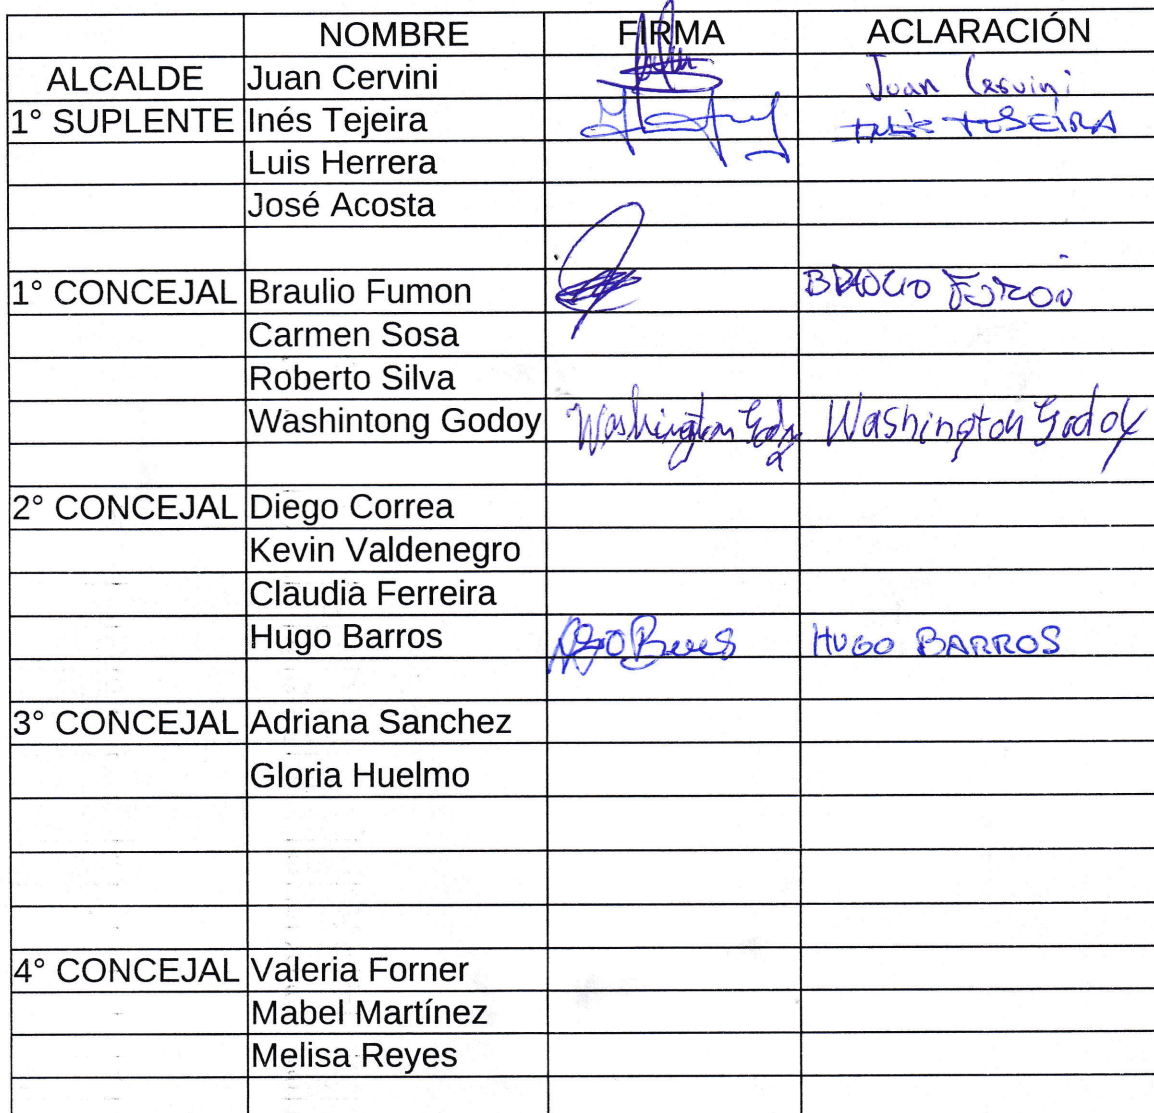 NOMBRE FIRMA ACLARACIÓN
ALCALDE Juan Cervini Juan Cervini
1° SUPLENTE Inés Tejeira TEJEIRA
Luis Herrera
José Acosta
1° CONCEJAL Braulio Fumon BRAULIO
Carmen Sosa
Roberto Silva
Washintong Godoy Washington Godoy Washington Godoy
2° CONCEJAL Diego Correa
Kevin Valdenegro
Claudia Ferreira
Hugo Barros HUGO BARROS
3° CONCEJAL Adriana Sanchez
Gloria Huelmo
4° CONCEJAL Valeria Forner
Mabel Martínez
Melisa Reyes